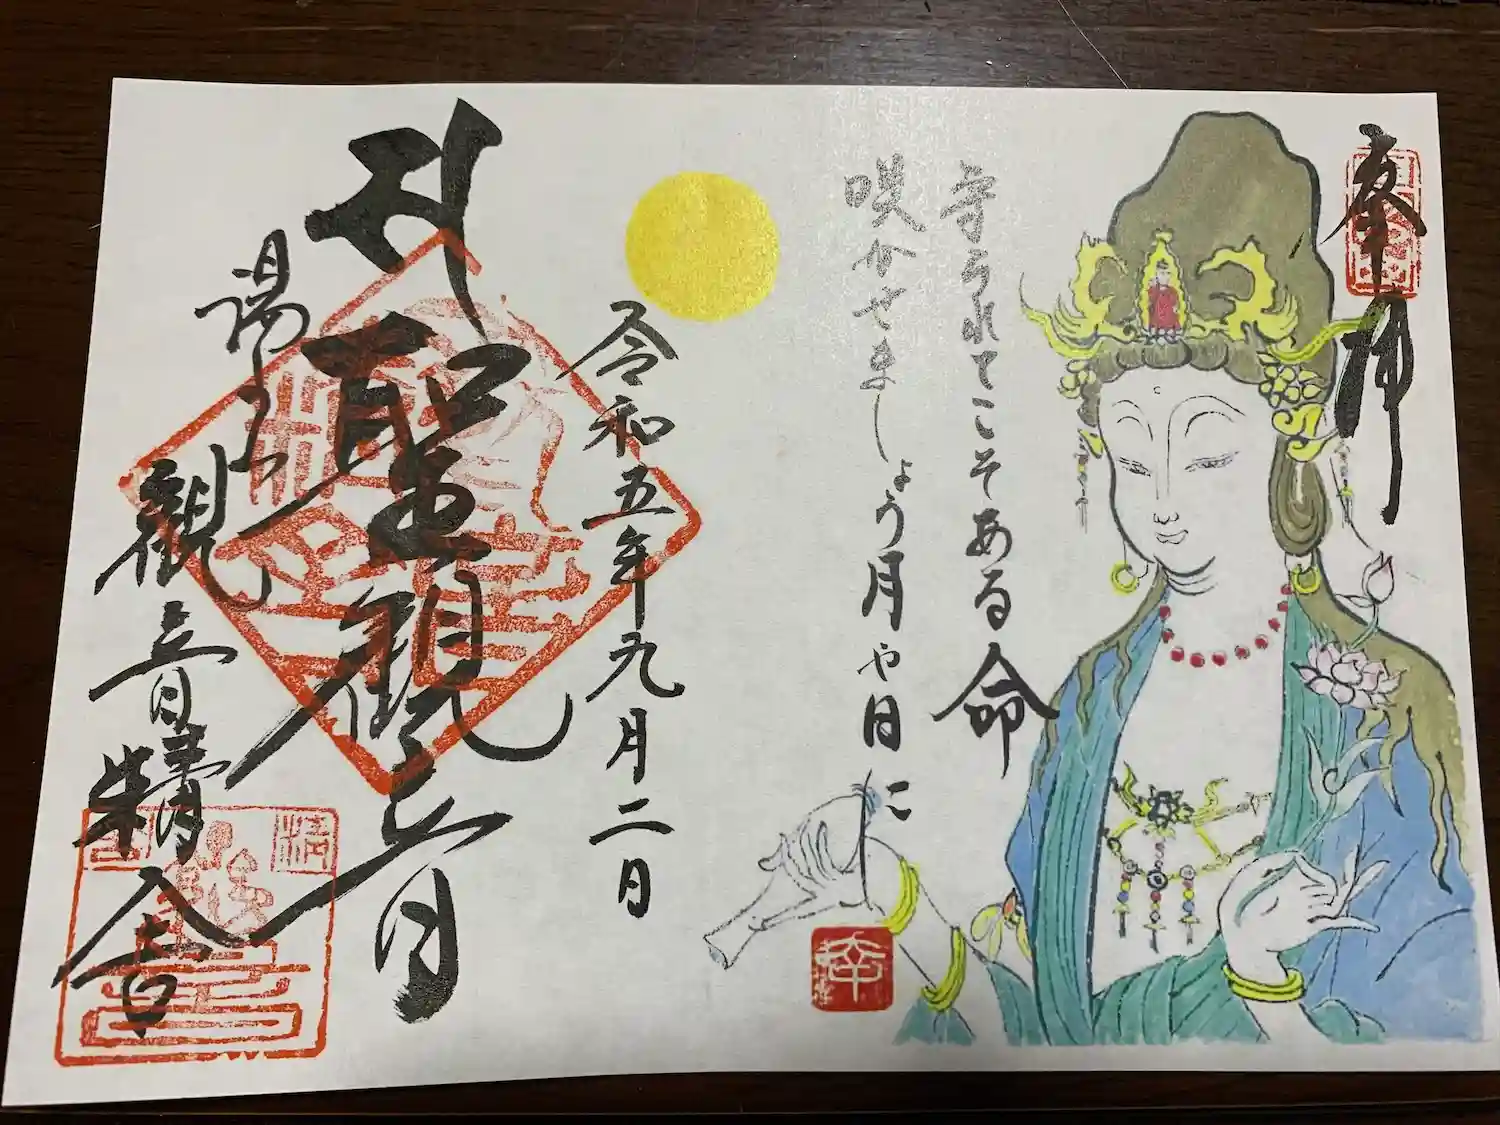 奉拝
守られてこそある命
咲かせましょう月や日に
幸
令和五年九月二日
聖観音
観音精舎